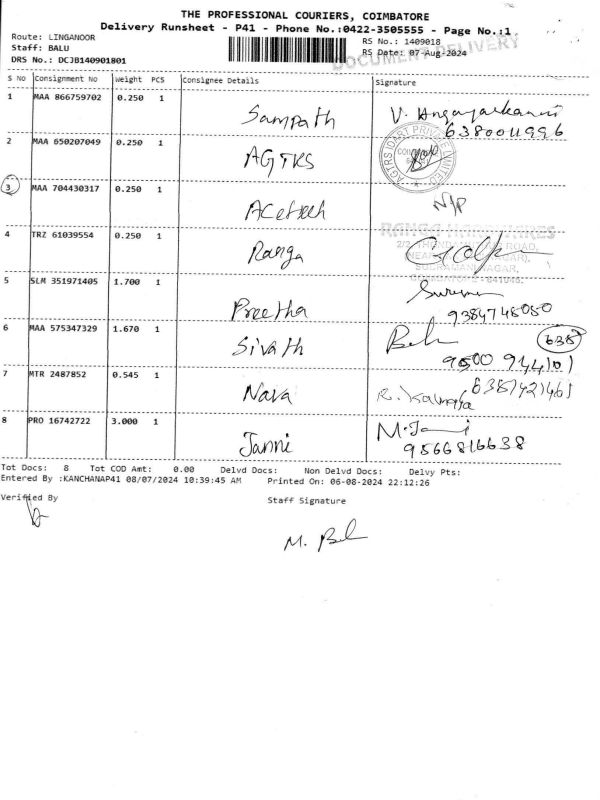 THE PROFESSIONAL COURIERS, COIMBATORE
Delivery Runsheet - P41 - Phone No.:0422-3505555 - Page No.:1
Route: LINGANOOR
Staff: BALU
DRS No.: DCJB140901801
RS No.: 1409018
RS Date: 07-Aug-2024
DOCUMENT DELIVERY
S No Consignment No Weight PCS Consignee Details Signature
1 MAA 866759702 0.250 1 Sampath V. Angayarkanni
6380011996
2 MAA 650207049 0.250 1 AGTRS
3 MAA 704430317 0.250 1 ACetech N/P
4 TRZ 61039554 0.250 1 Ranga
5 SLM 351971405 1.700 1 Preetha
9384748050
6 MAA 575347329 1.670 1 Sivath 638
9500 944101
7 MTR 2487852 0.545 1 Nava
8 PRO 16742722 3.000 1 Janni
9566816638
Tot Docs: 8 Tot COD Amt: 0.00 Delvd Docs: Non Delvd Docs: Delvy Pts:
Entered By :KANCHANAP41 08/07/2024 10:39:45 AM Printed On: 06-08-2024 22:12:26
Verified By Staff Signature